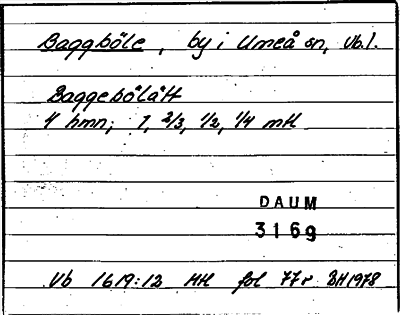 Baggböle, by i Umeå sn, Vb.l.
Baggebölätt
4 hmn; 1, 2/3, 1/2, 1/4 mtl
DAUM
316g
Vb 1619:12 HH fol 77r BH1978